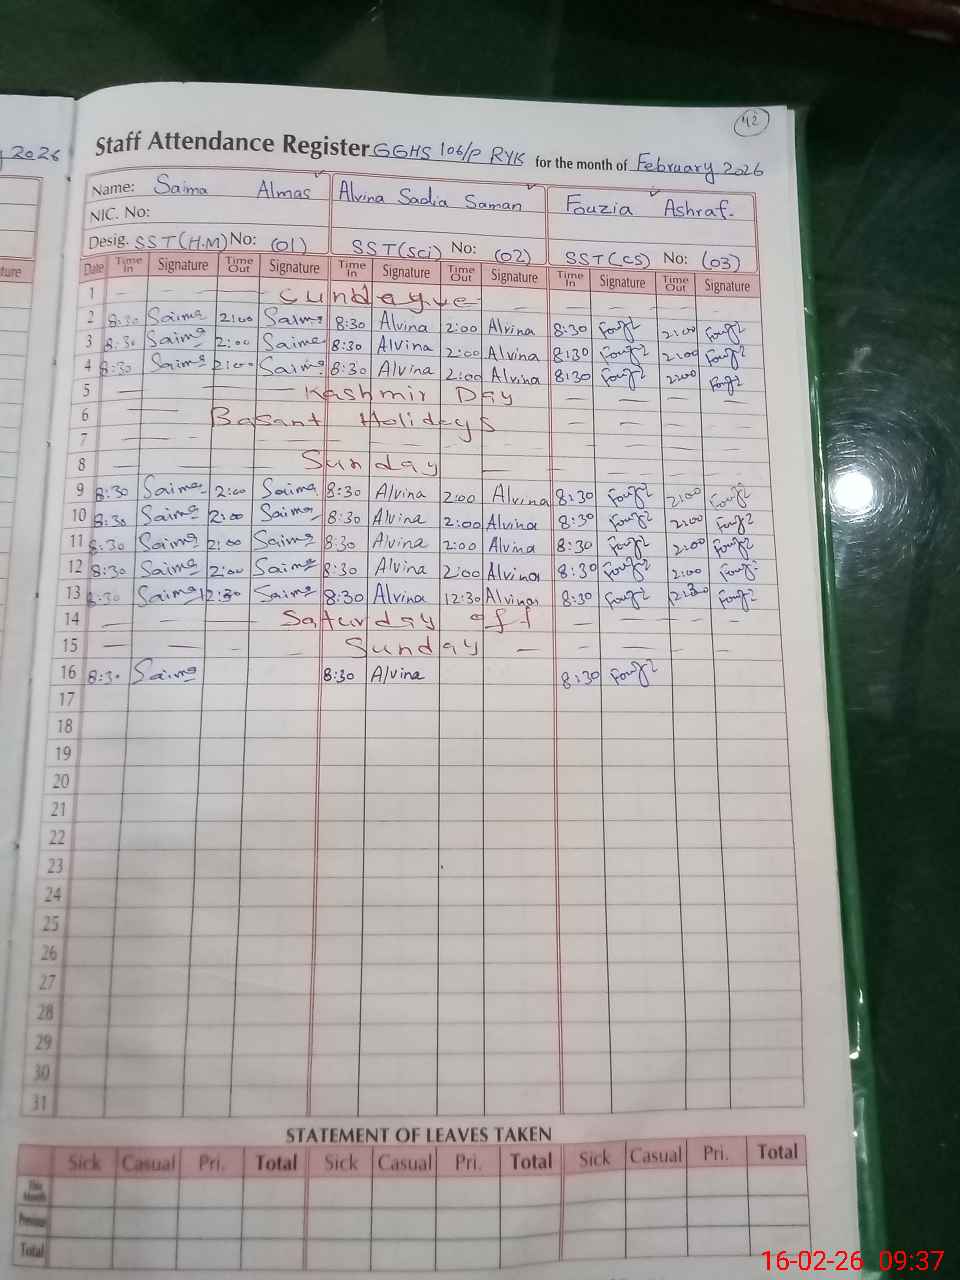 42
y 2026
Staff Attendance Register GGHS 106/P RYK for the month of February 2026
Name: Saima Almas Alvina Sadia Saman Fouzia Ashraf.
NIC. No:
Desig. SST(H.M) No: (01) SST(sci) No: (02) SST(CS) No: (03)
Date Time In Signature Time Out Signature Time In Signature Time Out Signature Time In Signature Time Out Signature
1
2 8:30 Saima 2:00 Saima 8:30 Alvina 2:00 Alvina 8:30 2:00
3 8:30 Saima 2:00 Saima 8:30 Alvina 2:00 Alvina 8:30 2:00
4 8:30 Saima 2:00 Saima 8:30 Alvina 2:00 Alvina 8:30 2:00
5 Kashmir Day
6 Basant Holidays
7
8 Sunday
9 8:30 Saima 2:00 Saima 8:30 Alvina 2:00 Alvina 8:30 2:00
10 8:30 Saima 2:00 Saima 8:30 Alvina 2:00 Alvina 8:30 2:00
11 8:30 Saima 2:00 Saima 8:30 Alvina 2:00 Alvina 8:30 2:00
12 8:30 Saima 2:00 Saima 8:30 Alvina 2:00 Alvina 8:30 2:00
13 8:30 Saima 12:30 Saima 8:30 Alvina 12:30 Alvina 8:30 12:30
14 Saturday off
15 Sunday
16 8:30 Saima 8:30 Alvina 8:30
17
18
19
20
21
22
23
24
25
26
27
28
29
30
31
STATEMENT OF LEAVES TAKEN
Sick Casual Pri. Total Sick Casual Pri. Total Sick Casual Pri. Total
This Month
Previous
Total
16-02-26 09:37